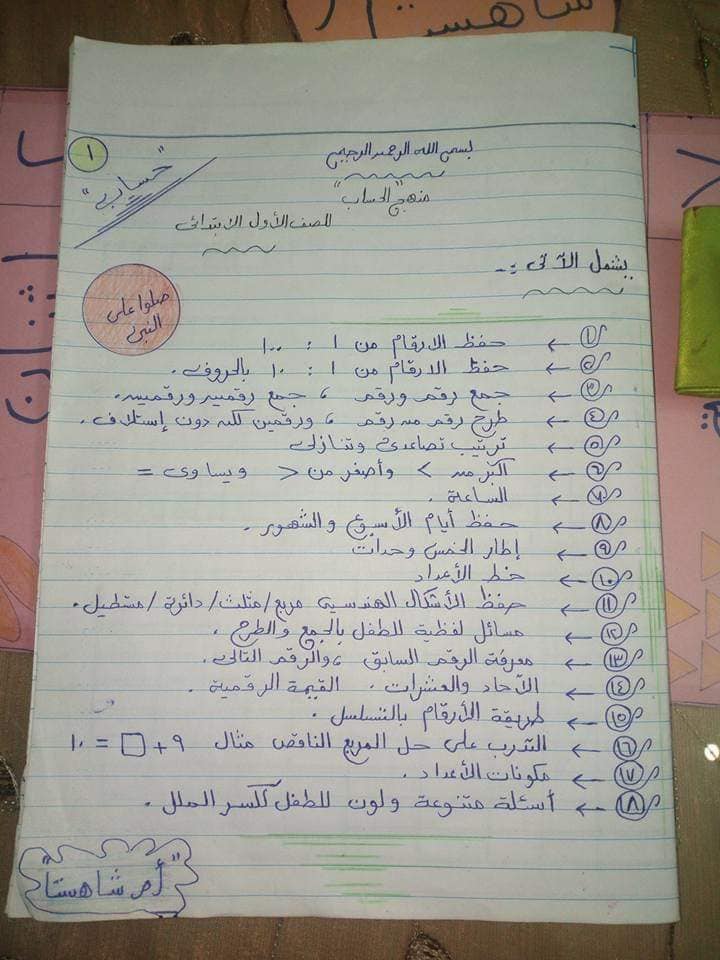 شاهستا
١
"حساب"
بسم الله الرحمن الرحيم
منهج "الحساب"
للصف الأول الابتدائى
صلوا على
النبى
يشتمل الآتى :-
١ ← حفظ الارقام من ١ : ١٠٠
٢ ← حفظ الارقام من ١ : ١٠ بالحروف.
٣ ← جمع رقم ورقم ، جمع رقمين ورقمين.
٤ ← طرح رقم من رقم ، ورقمين لكن دون إستلاف.
٥ ← ترتيب تصاعدى وتنازلى
٦ ← أكبر من > وأصغر من < ويساوى =
٧ ← الساعة.
٨ ← حفظ أيام الأسبوع والشهور.
٩ ← إطار الخمس وحدات
١٠ ← خط الأعداد
١١ ← حفظ الأشكال الهندسية مربع/مثلث/دائرة/مستطيل.
١٢ ← مسائل لفظية للطفل بالجمع والطرح.
١٣ ← معرفة الرقم السابق ، والرقم التالى.
١٤ ← الآحاد والعشرات. القيمة الرقمية.
١٥ ← طريقة الأرقام بالتسلسل.
١٦ ← التدرب على حل المربع الناقص مثال ٩ + □ = ١٠
١٧ ← مكونات الأعداد.
١٨ ← أسئلة متنوعة ولون للطفل لكسر الملل.
"أم شاهستا"